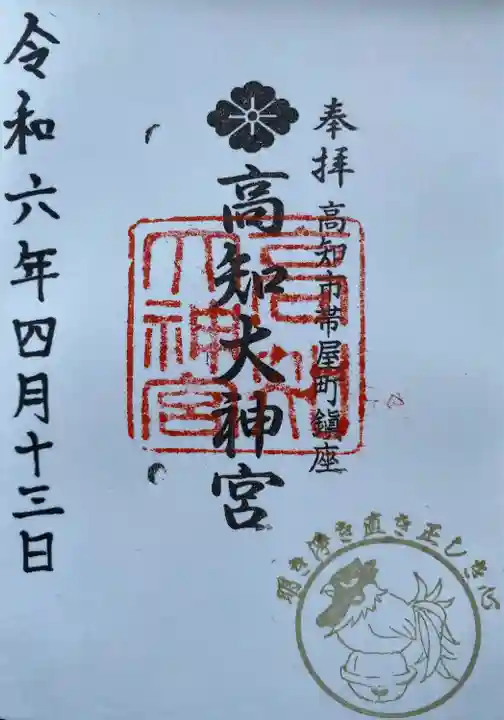 奉拝
高知市帯屋町鎮座
高知大神宮
令和六年四月十三日
高知大神宮
明き浄き直き正しき心